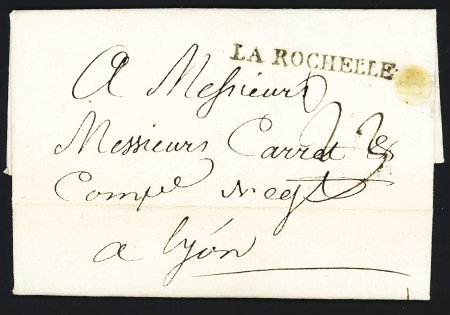 LA ROCHELLE
A Messieurs
Messieurs Carret &
Compe Negt
a lyon